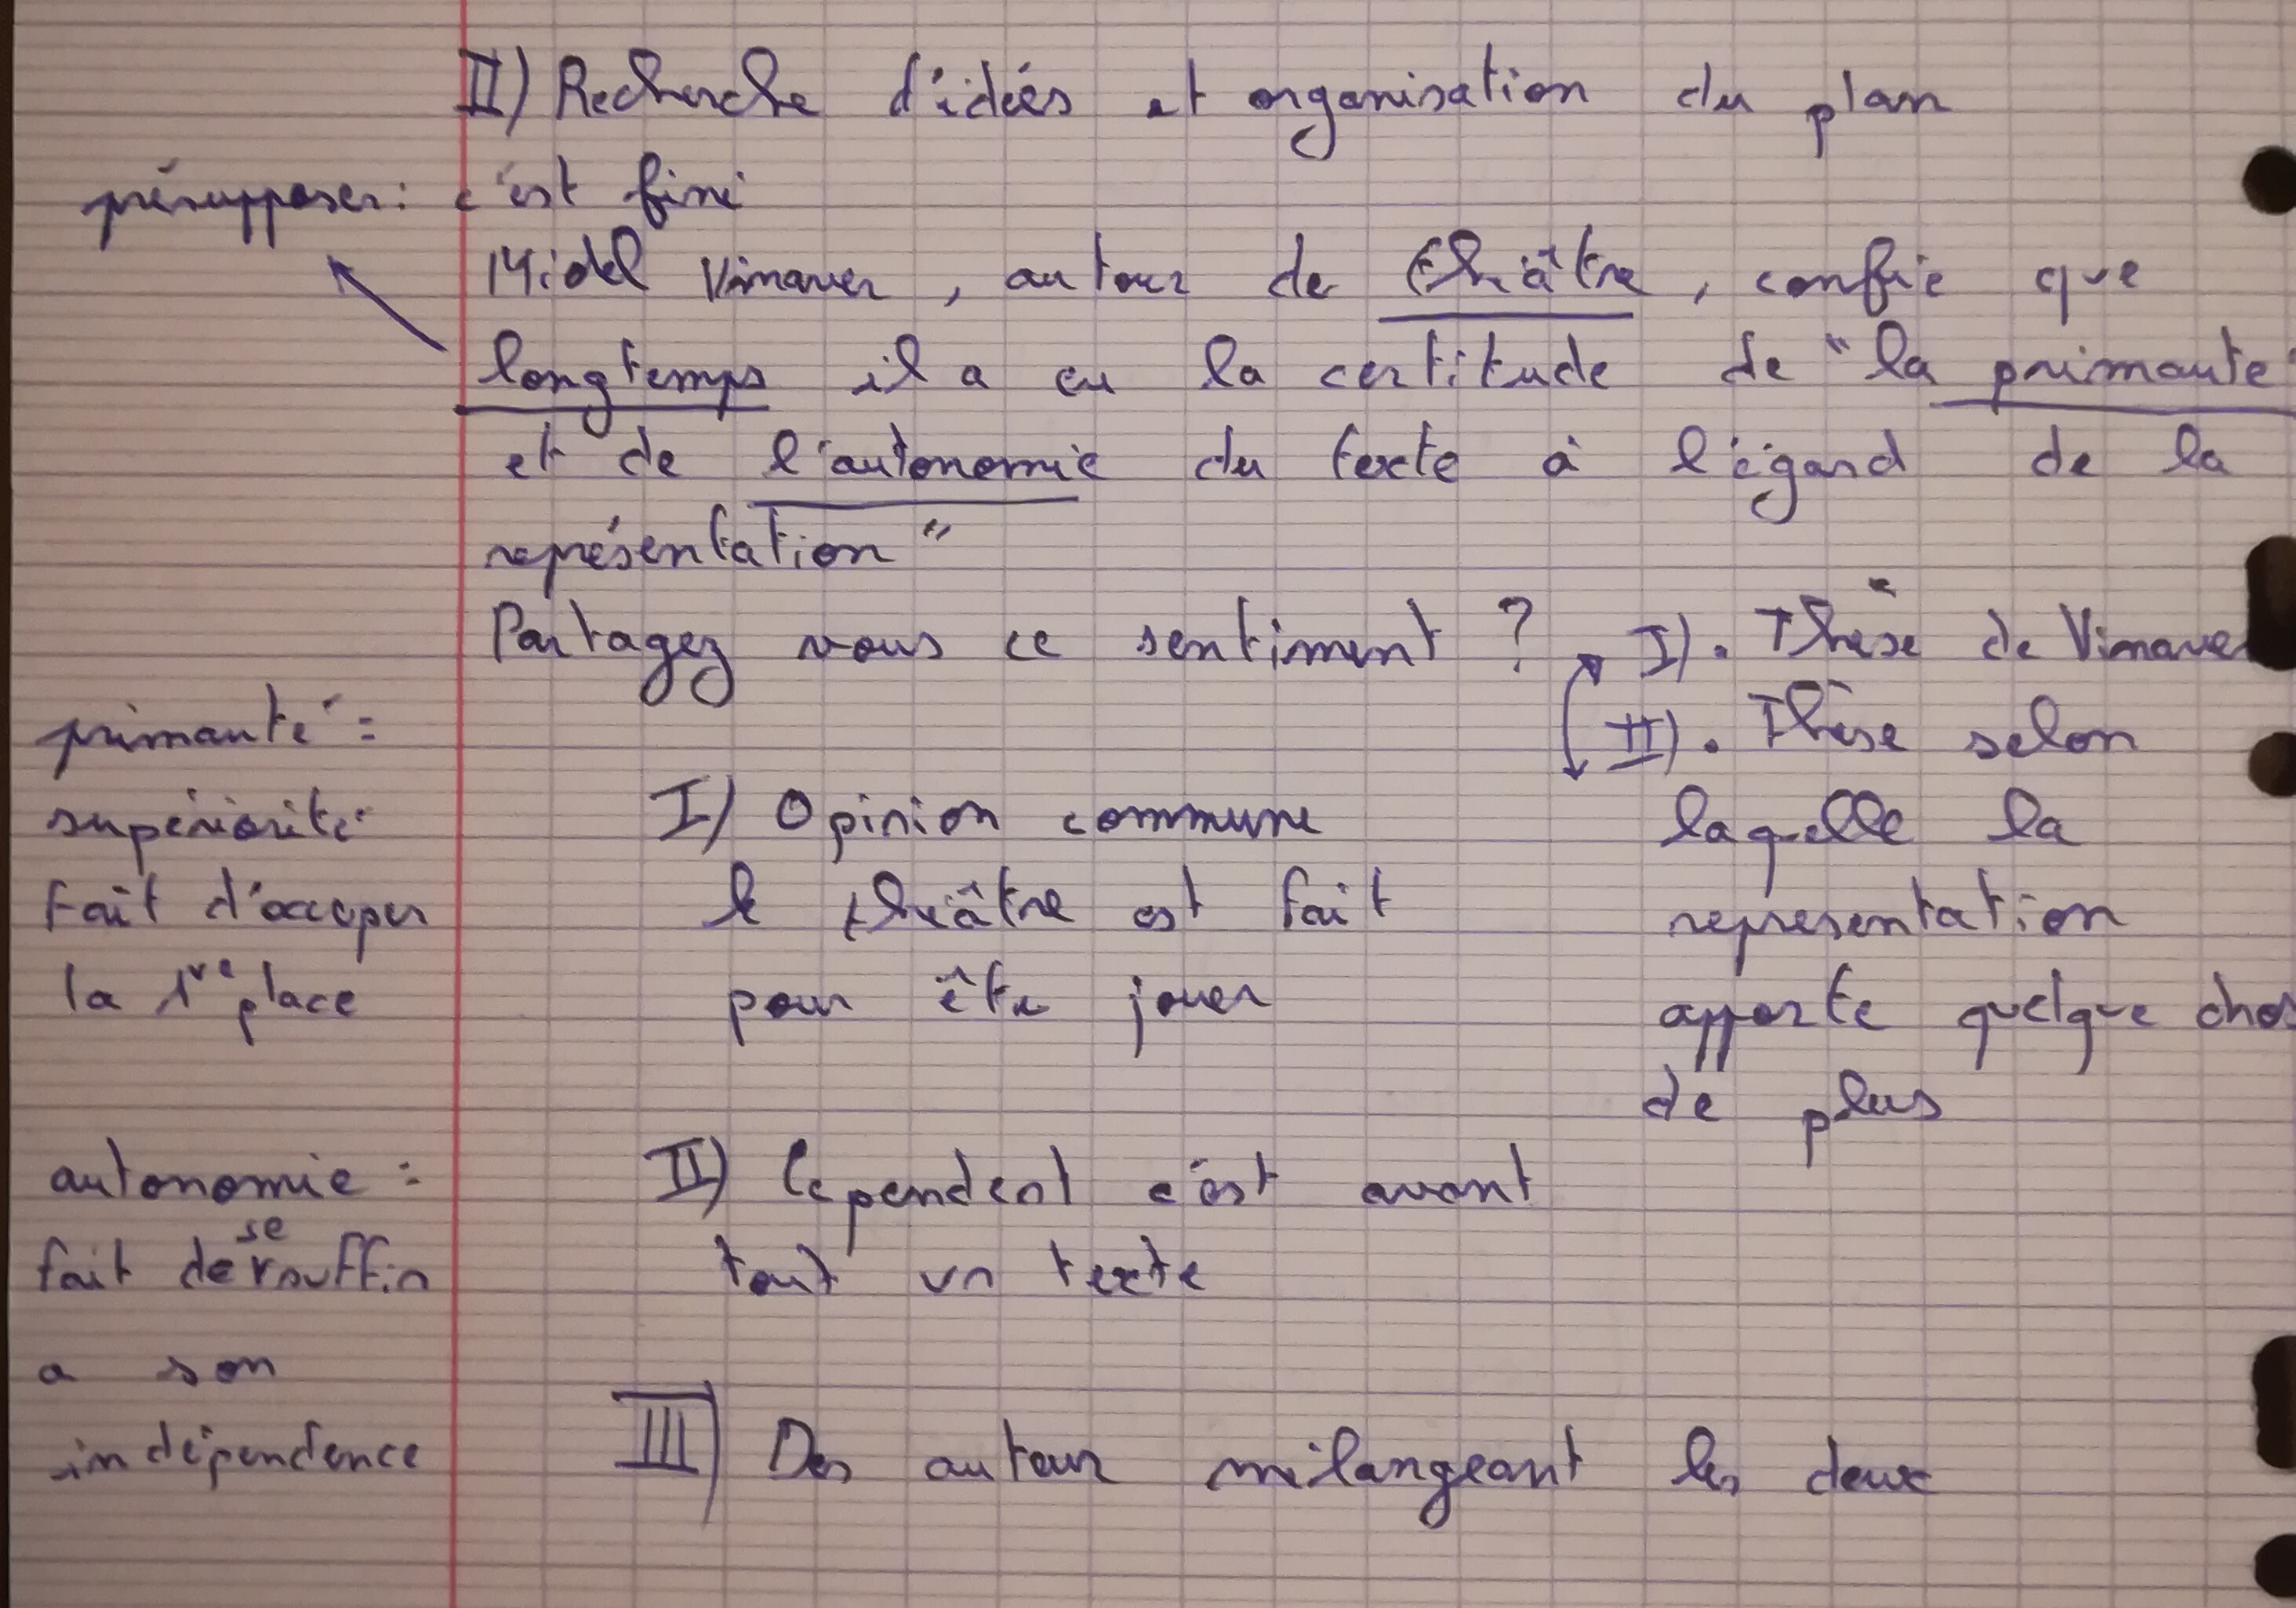 II) Recherche d'idées et organisation du plan
présupposer : c'est fini
Michel Vinaver, auteur de théâtre, confie que
longtemps il a eu la certitude de "la primauté"
et de l'autonomie du texte à l'égard de la
représentation"
Partagez vous ce sentiment ?
I). Thèse de Vinaver
II). Thèse selon
laquelle la
representation
apporte quelque chos
de plus
primauté =
supériorité
Fait d'occuper
la 1re place
I) Opinion commune
le théâtre est fait
pour être jouer
autonomie =
fait de se suffir
a son
indépendence
II) Cependent c'est avant
tout un texte
III) Des auteur mélangeant les deux